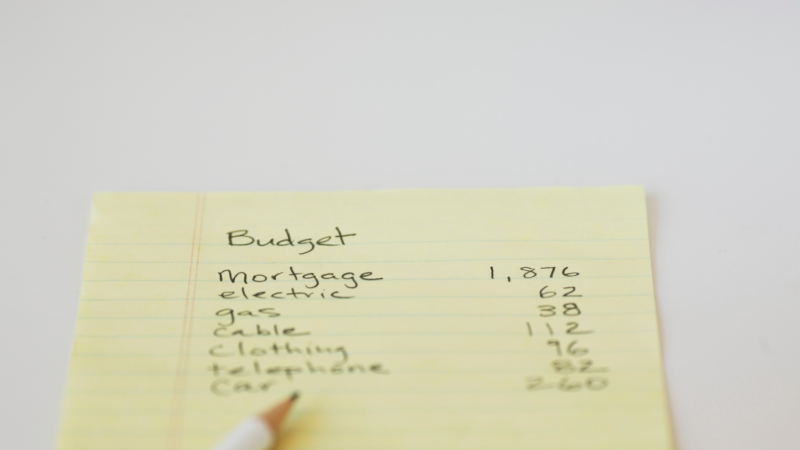 Budget
Mortgage 1,876
electric 62
gas 38
cable 112
Clothing 96
telephone 82
Car 260